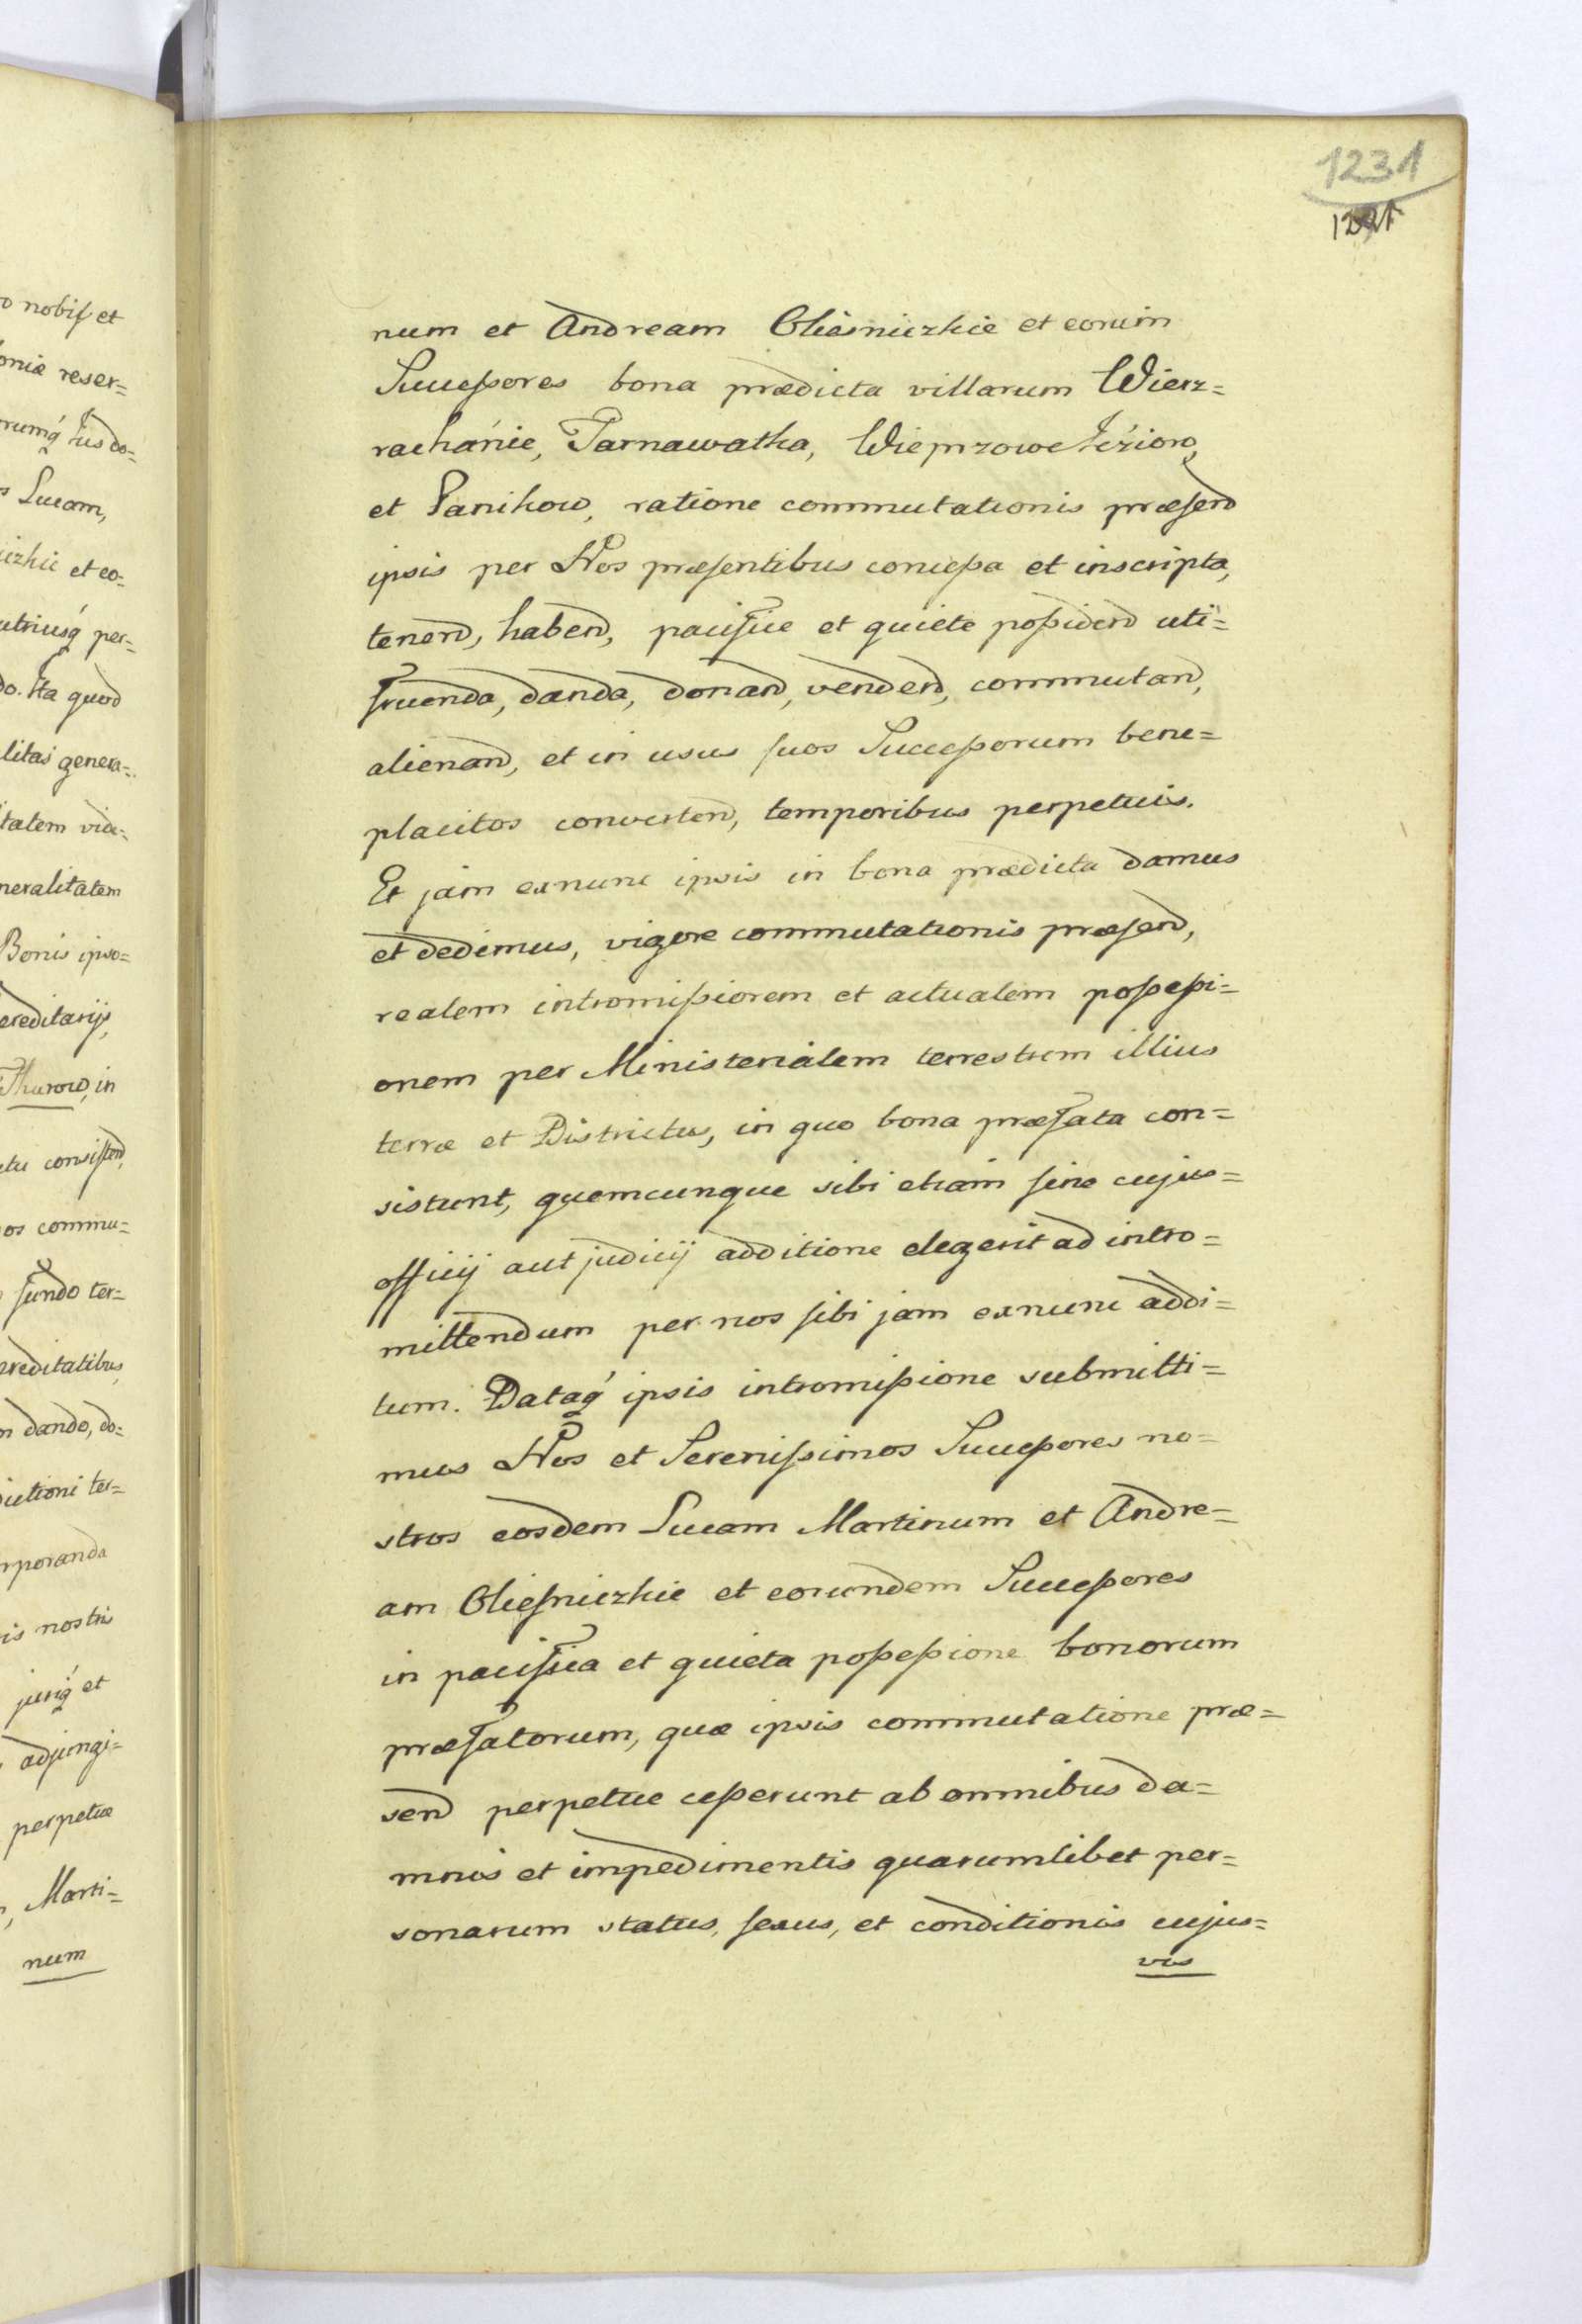 1231
num et Andream Olieśniczkie et eorum
Successores bona prædicta villarum Wierz=
rachánie, Tarnawatka, Wieprzowe Iézioro,
et Panikow, ratione commutationis præsend
ipsis per Nos præsentibus concessa et inscripta,
tenend, habend, pacifice et quiete possidend uti=
fruenda, danda, donand, vendend, commutand,
alienand, et in usus suos Successorum bene=
placitos convertend, temporibus perpetuis.
Et jam exnunc ipsis in bona prædicta damus
et dedimus, vigore commutationis præsend,
realem intromissionem et actualem possessi=
onem per Ministerialem terrestrem illius
terræ et Districtus, in quo bona præfata con=
sistunt, quemcunque sibi etiam sine cujus=
officij aut judicij additione elegerit ad intro=
mittendum per nos sibi jam exnunc addi=
tum. Dataq́ ipsis intromissione submitti=
mus Nos et Serenissimos Successores no=
stros eosdem Lucam Martinum et Andre=
am Oliesniczkie et eorundem Successores
in pacifica et quieta possessione bonorum
præfatorum, quæ ipsis commutatione præ=
send perpetue cesserunt ab omnibus da=
mnis et impedimentis quarumlibet per=
sonarum status, sexus, et conditionis cujus=
vis
o nobis et
oniæ reser=
rumq́ Ius do=
s Lucam,
iczkie et eo=
utriusq́ per=
do. Ita quod
litas genera=
tatem vide=
neralitatem
Bonis ipso=
ereditarijs,
Thurow, in
ctu consistend,
os commu=
fundo ter=
ereditatibus
n dando, do=
dictioni ter=
rporanda
is nostris
jurisq́ et
adjungi=
perpetuæ
, Marti=
num